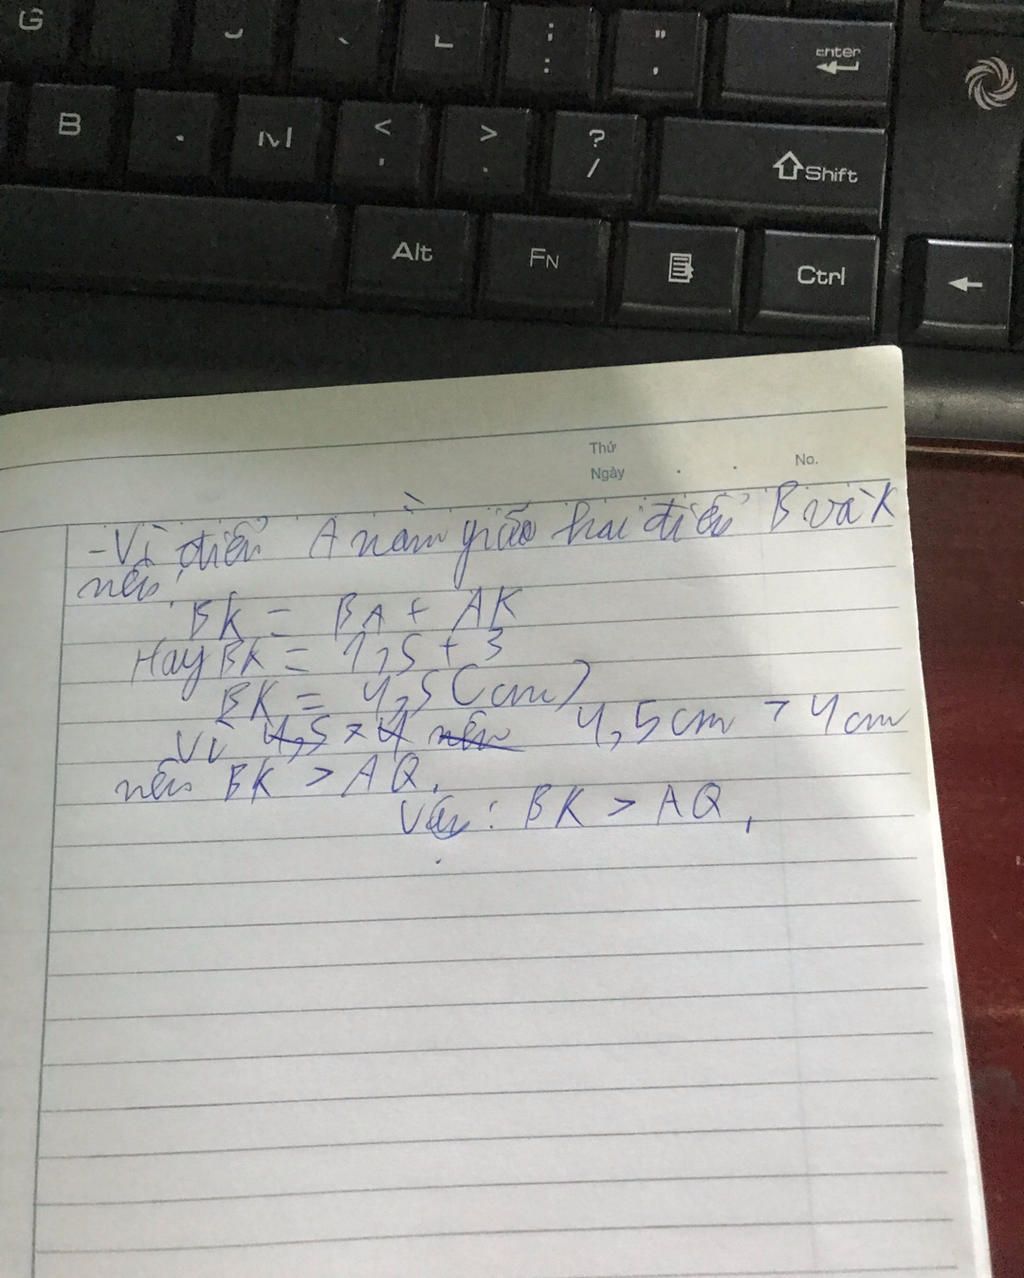 G
; :
" '
Enter
B
M
< ,
> .
? /
Shift
Alt
FN
Ctrl
Thứ
Ngày
No.
-Vì điểm A nằm giữa hai điểm B và K
nên:
BK = BA + AK
Hay BK = 1,5 + 3
BK = 4,5 (cm)
Vì 4,5 > 4 nên 4,5cm > 4cm
nên BK > AQ.
Vậy: BK > AQ.